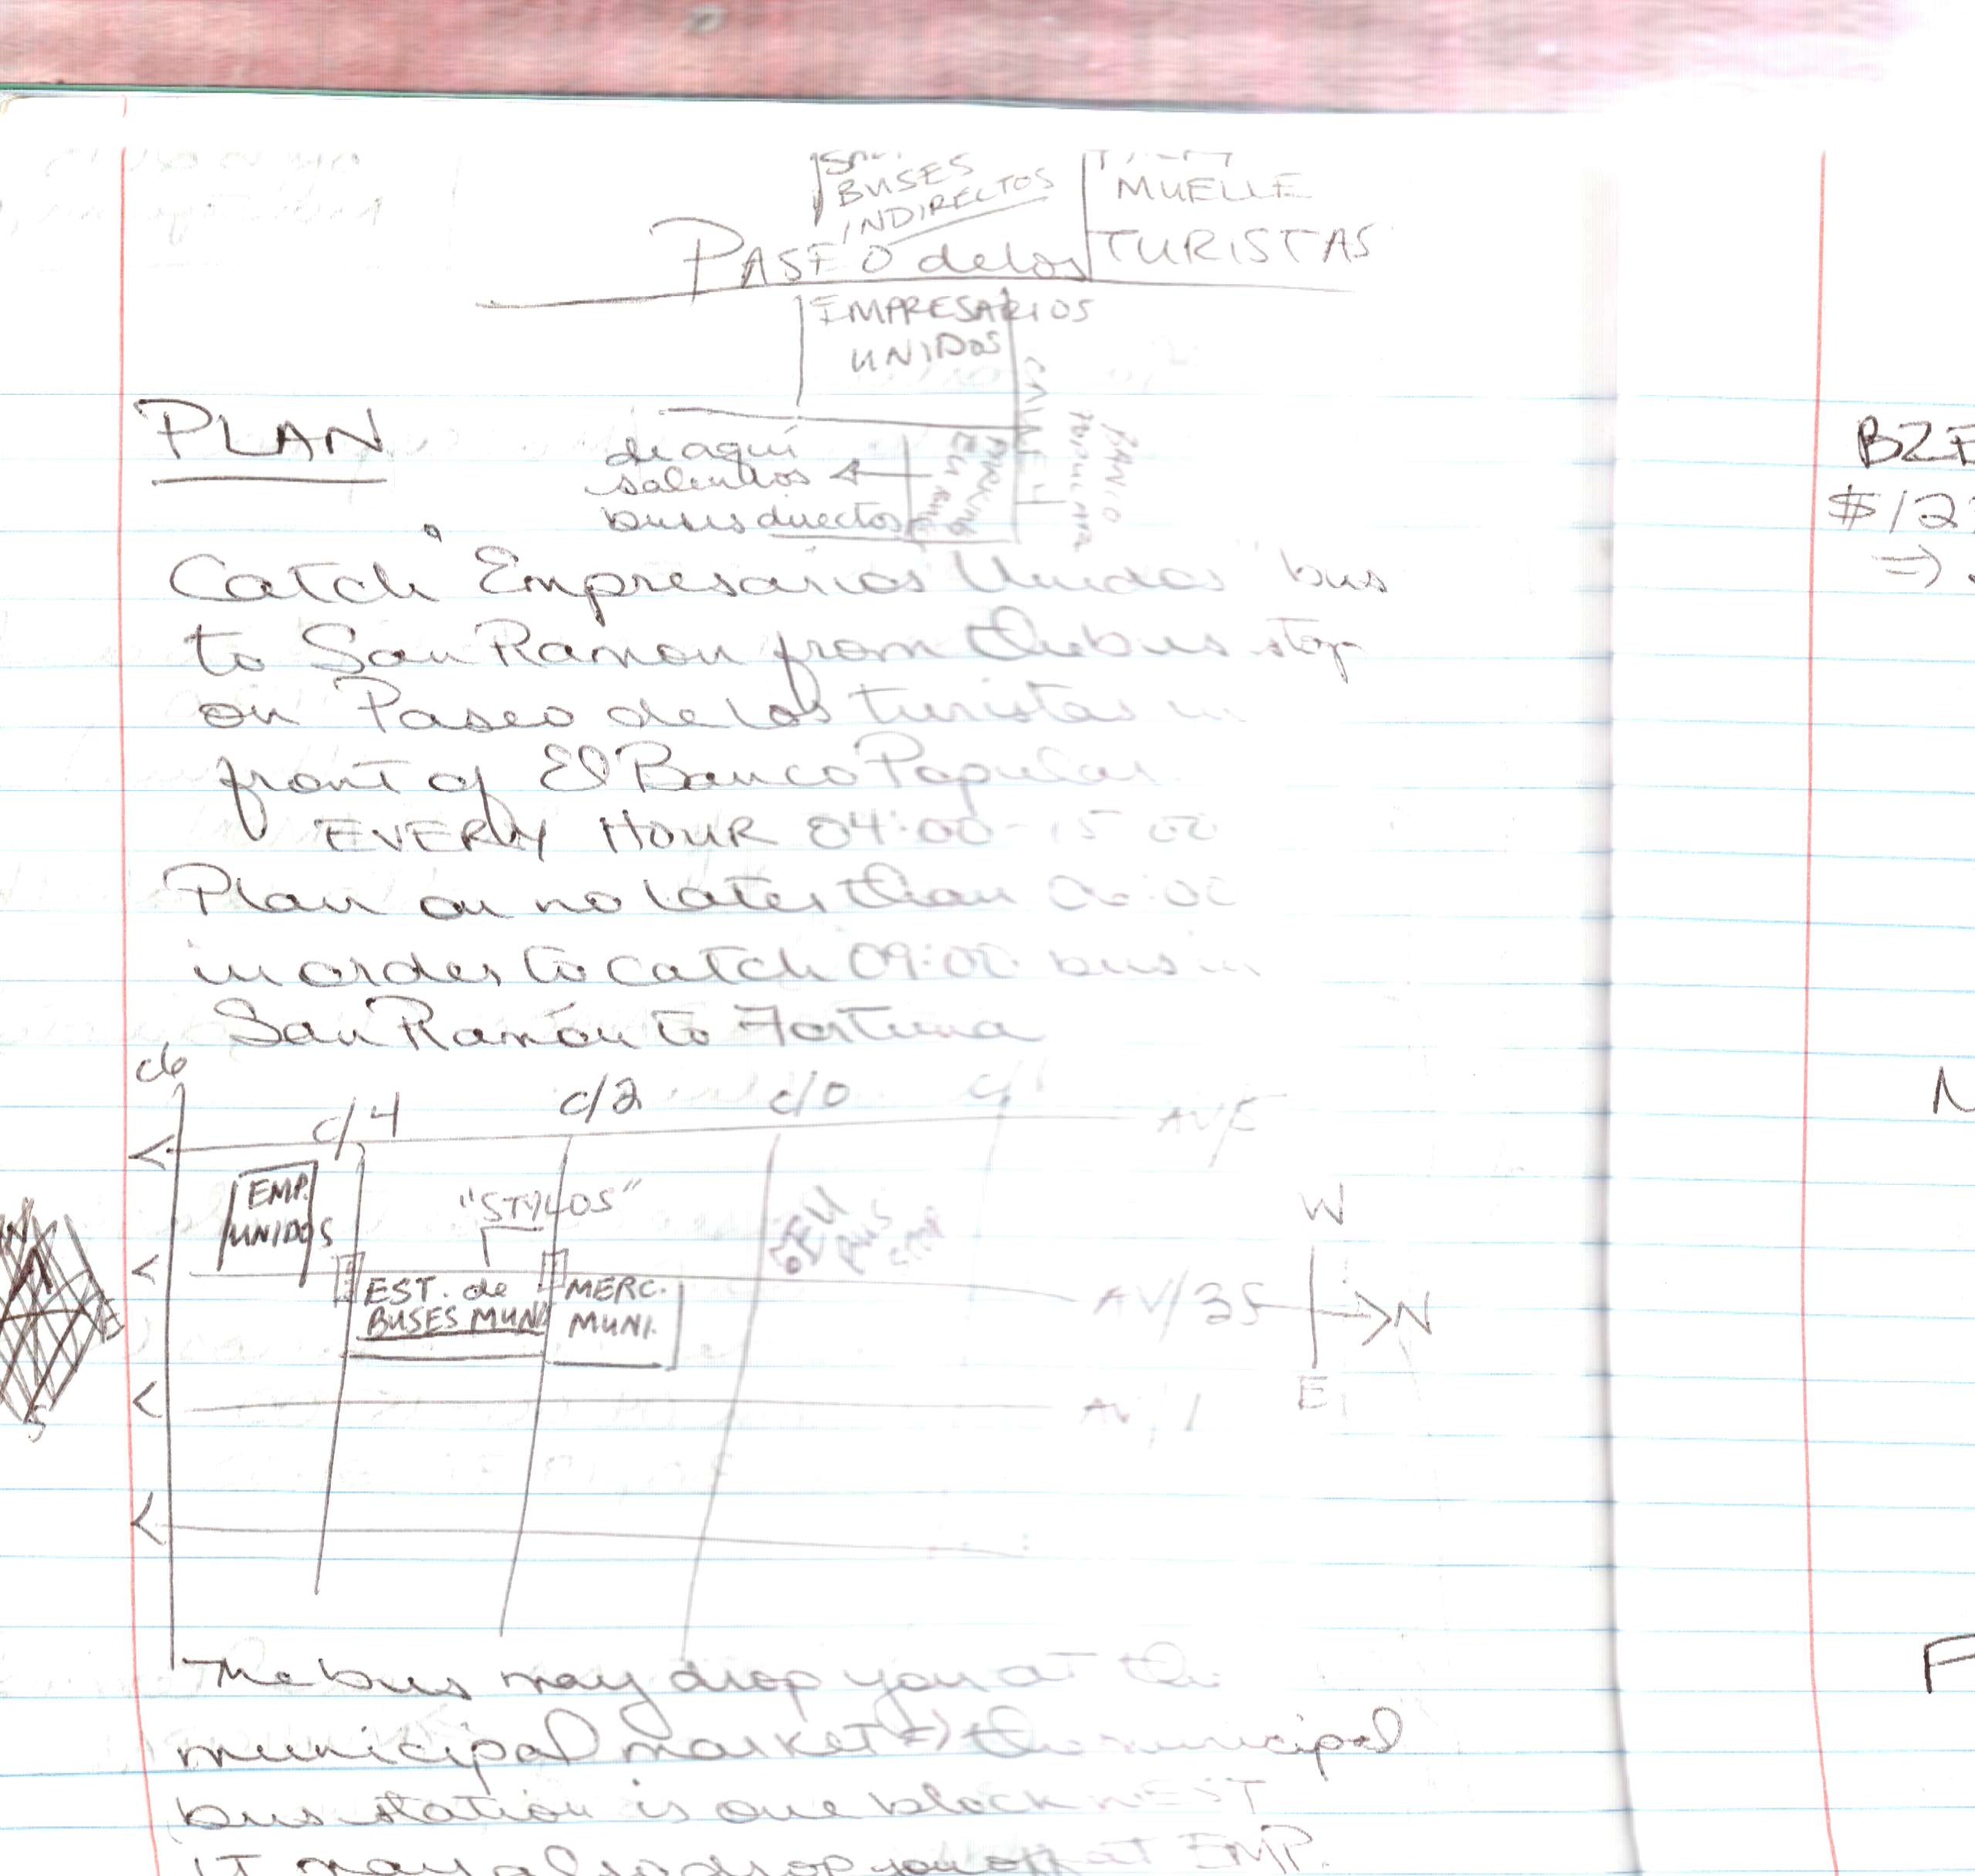 BUSES
INDIRECTOS
MUELLE
PASEO de los TURISTAS
EMPRESARIOS
UNIDOS
CALLE 4
BANCO
POPULAR
PLAN
de aquí
salen los
buses directos
PARKING
Catch "Empresarios Unidos" bus
to San Ramon from the bus stop
on Paseo de los turistas in
front of El Banco Popular
EVERY HOUR 04:00-15 00
Plan on no later than
in order to catch 09:00 bus in
San Ramón to Fortuna
c/6
c/4
c/2
c/0
EMP.
UNIDOS
"STYLOS"
EST. de
BUSES MUNI
MERC.
MUNI.
AV/
AV/3
AV/1
W
N
E
The bus may drop you at the
municipal market => the municipal
bus station is one block WEST
IT may also drop you off at EMP.
BZE
$12
=>
N
F